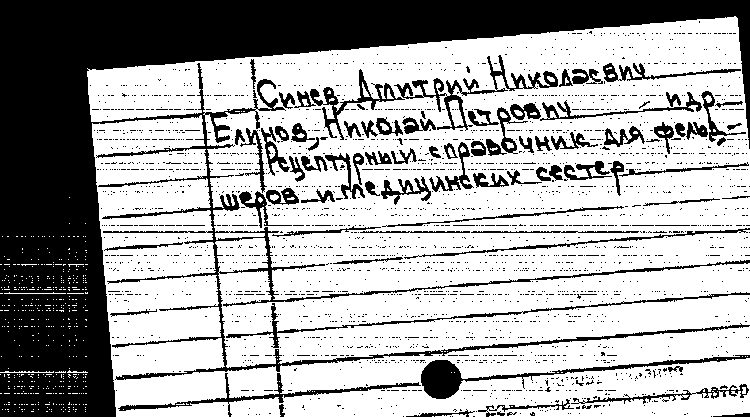 Синев, Дмитрий Николаевич
Елинов, Николай Петрович и др.
Рецептурный справочник для фельд-
шеров и медицинских сестер.
автор